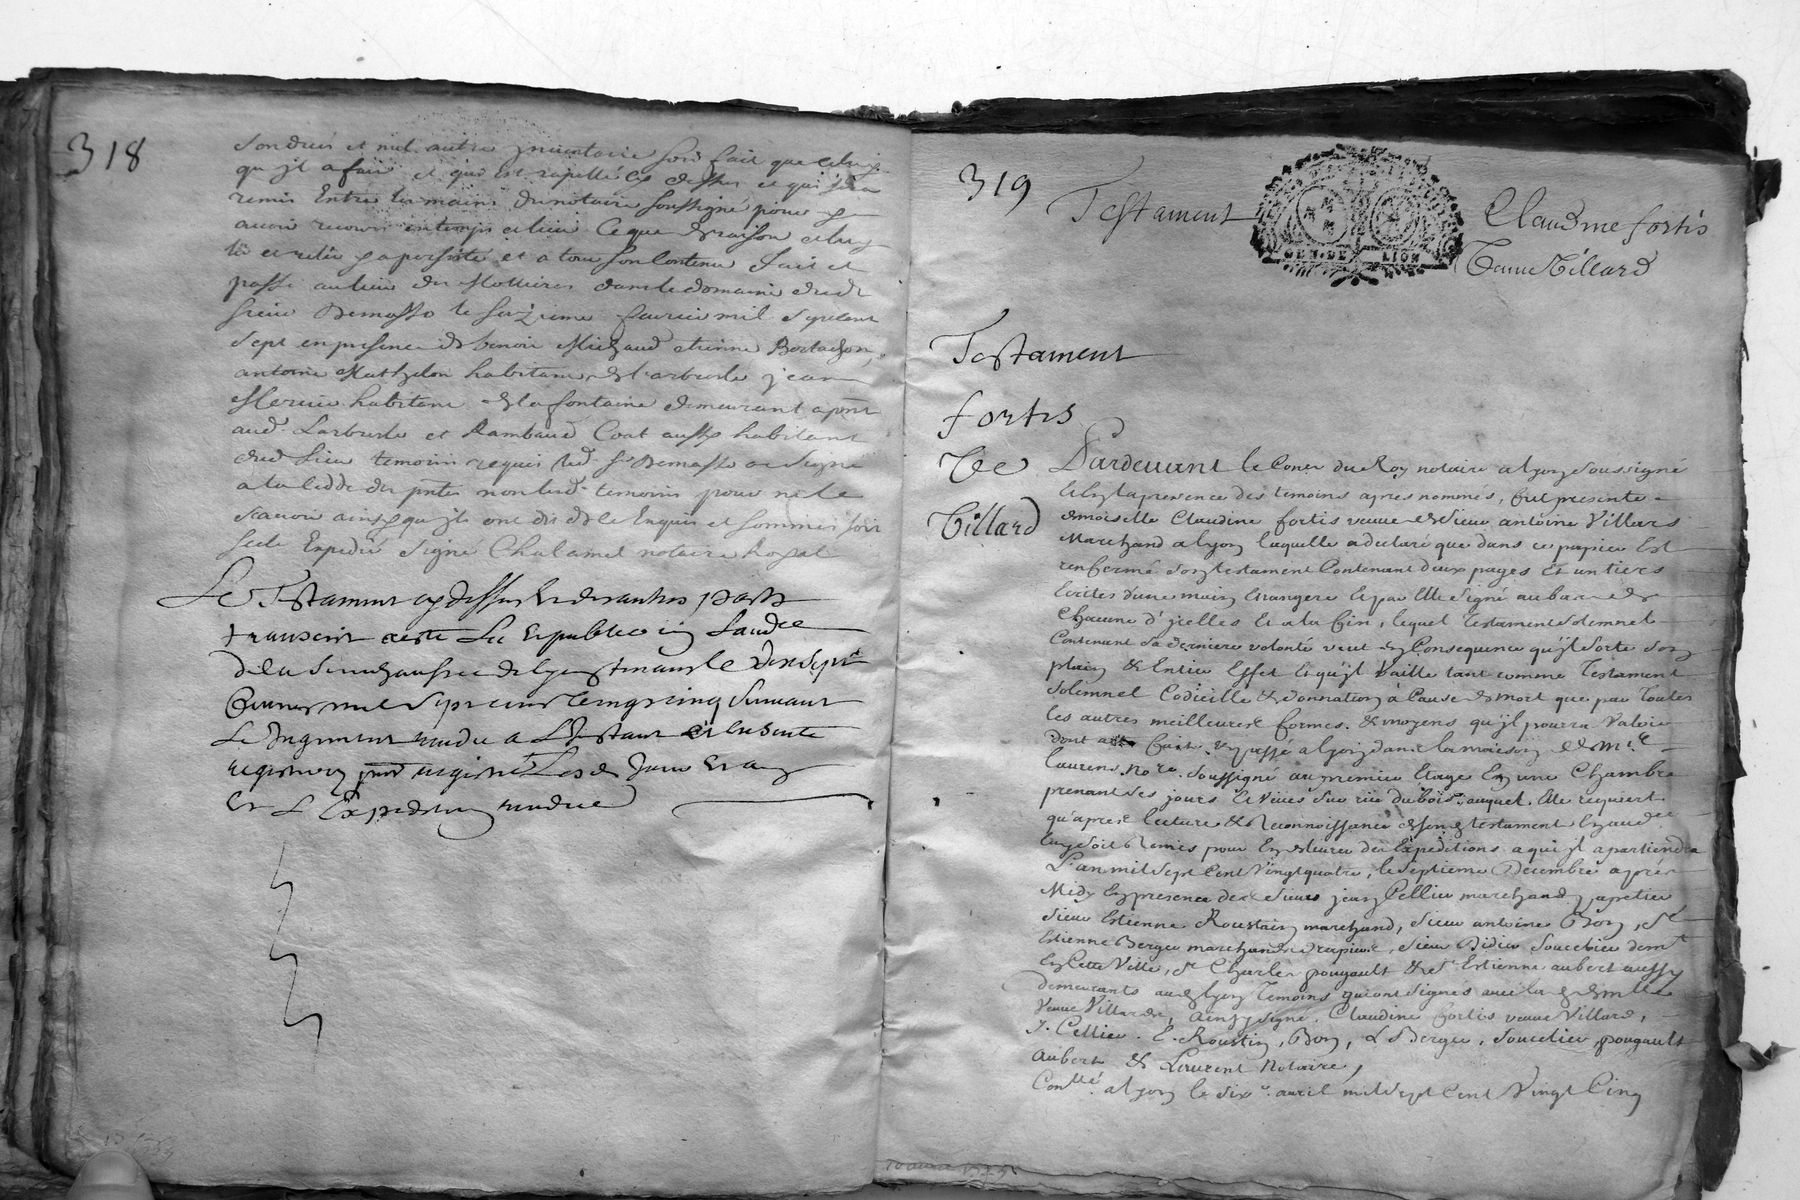 318
son dueü et nul autre jnventaire sera fait que celuy
qu'jl a fait et qui est rapellé cy dessus et qui sera
remis Entre les mains du notaire soussigné pour y
avoir recours en temps et lieu Ce que de raison a luy
lü et relü y a persisté et a tout son contenu fait et
passé au lieu des Mollieres dans le domaine dudt
sieur Demasso le seizieme fevrier mil sept cent
sept en presence de benoit Michaud etienne
antoine Mathelon habitans de l'arbresle jean
Mercier habitant de la fontaine demeurant apnt
aud. Larbresle et Rambaud Coat aussy habitant
dud Lieu temoins requis led. Sr Demasso a signé
a la cedde des pntes non lesd. temoins pour ne le
scavoir ainsy qu'jls ont dit de le Enquis et sommés soit
scelé Expedié signé Chalamel notaire Royal
Le Testament cy dessus et des autres parts
transcrit a esté Lu et publié en Laudce
de la Senechaussée de Lyon tenant le dix sept
mil Sept cens vingt cinq Suivant
Le Jugement rendu a L'Instant Et Ensuite
registré Les d. Jour et an
Et L'Expedition rendue
319
Testament
GEN. DE LION
Claudine fortis
Veuve Villard
Testament
fortis
Vve
Villard
Pardevant le Coner du Roy notaire a lyon soussigné
et en la presence des temoins apres nommés, fut presente
demoiselle Claudine fortis veuve de Sieur antoine Villars
Marchand a lyon laquelle a declaré que dans ce papier Est
renfermé son testament Contenant deux pages Et un tiers
Ecrites d'une main Etrangere et par Elle signé au bas de
Chacune d'jcelles Et a la fin, lequel Testament solemnel
Contenant sa derniere volonté veut en Consequence qu'jl sorte son
plein & Entier Effet Et qu'jl Vaille tant comme Testament
solemnel Codicille & donnation à Cause de mort que par toutes
les autres meilleures formes & moyens qu'jl pourra Valoir
dont acte fait & passé a lyon dans la maison de Mr.e
laurent, Nore. soussigné au premier Etage En une Chambre
prenant ses jours Et vües sur rüe du bois, auquel Elle requiert
qu'apres lecture & Reconnoissance de son testament En audce
luy soit Remis pour En delivrer des Expeditions a qui jl apartiendra
L'an mil Sept Cent Vingt quatre, le Septieme Decembre après
Midy En presence des Sieurs jean Cellier marchand papetier
Sieur Estienne Roustain marchand, Sieur antoine Bon, Sr.
Estienne Berger marchands drapiers, Sieur Didier Souchier demt
En Cette Ville, Sr. Charles pougault & Sr. Estienne aubert aussy
demeurants aud lyon Temoins qui ont signés avec la d. dmlle
Veuve Villards, ainsy signé. Claudine fortis veuve Villard,
J. Cellier. E. Roustin, Bon, E Berger, Souchier, pougault
Aubert & Laurent Notaire,
Conllé. a lyon le Six.e avril mil Sept Cent Vingt Cinq